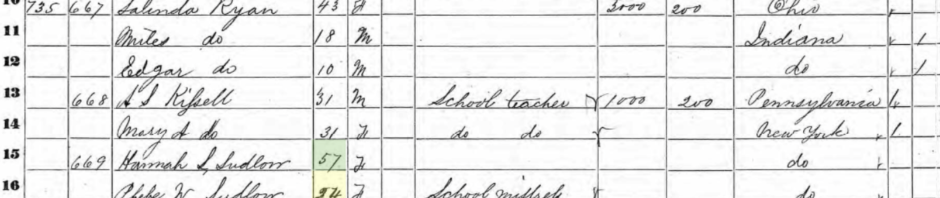 735 667 Salinda Ryan 43 F 3000 200 Ohio
11 Miles do 18 M Indiana 1
12 Edgar do 10 M do 1
13 668 A S Kissell 31 M School teacher 1000 200 Pennsylvania
14 Mary A do 31 F do do New York 1
15 669 Hannah S, Sudlow 57 F do
16 Phebe W Sudlow F School mistress do